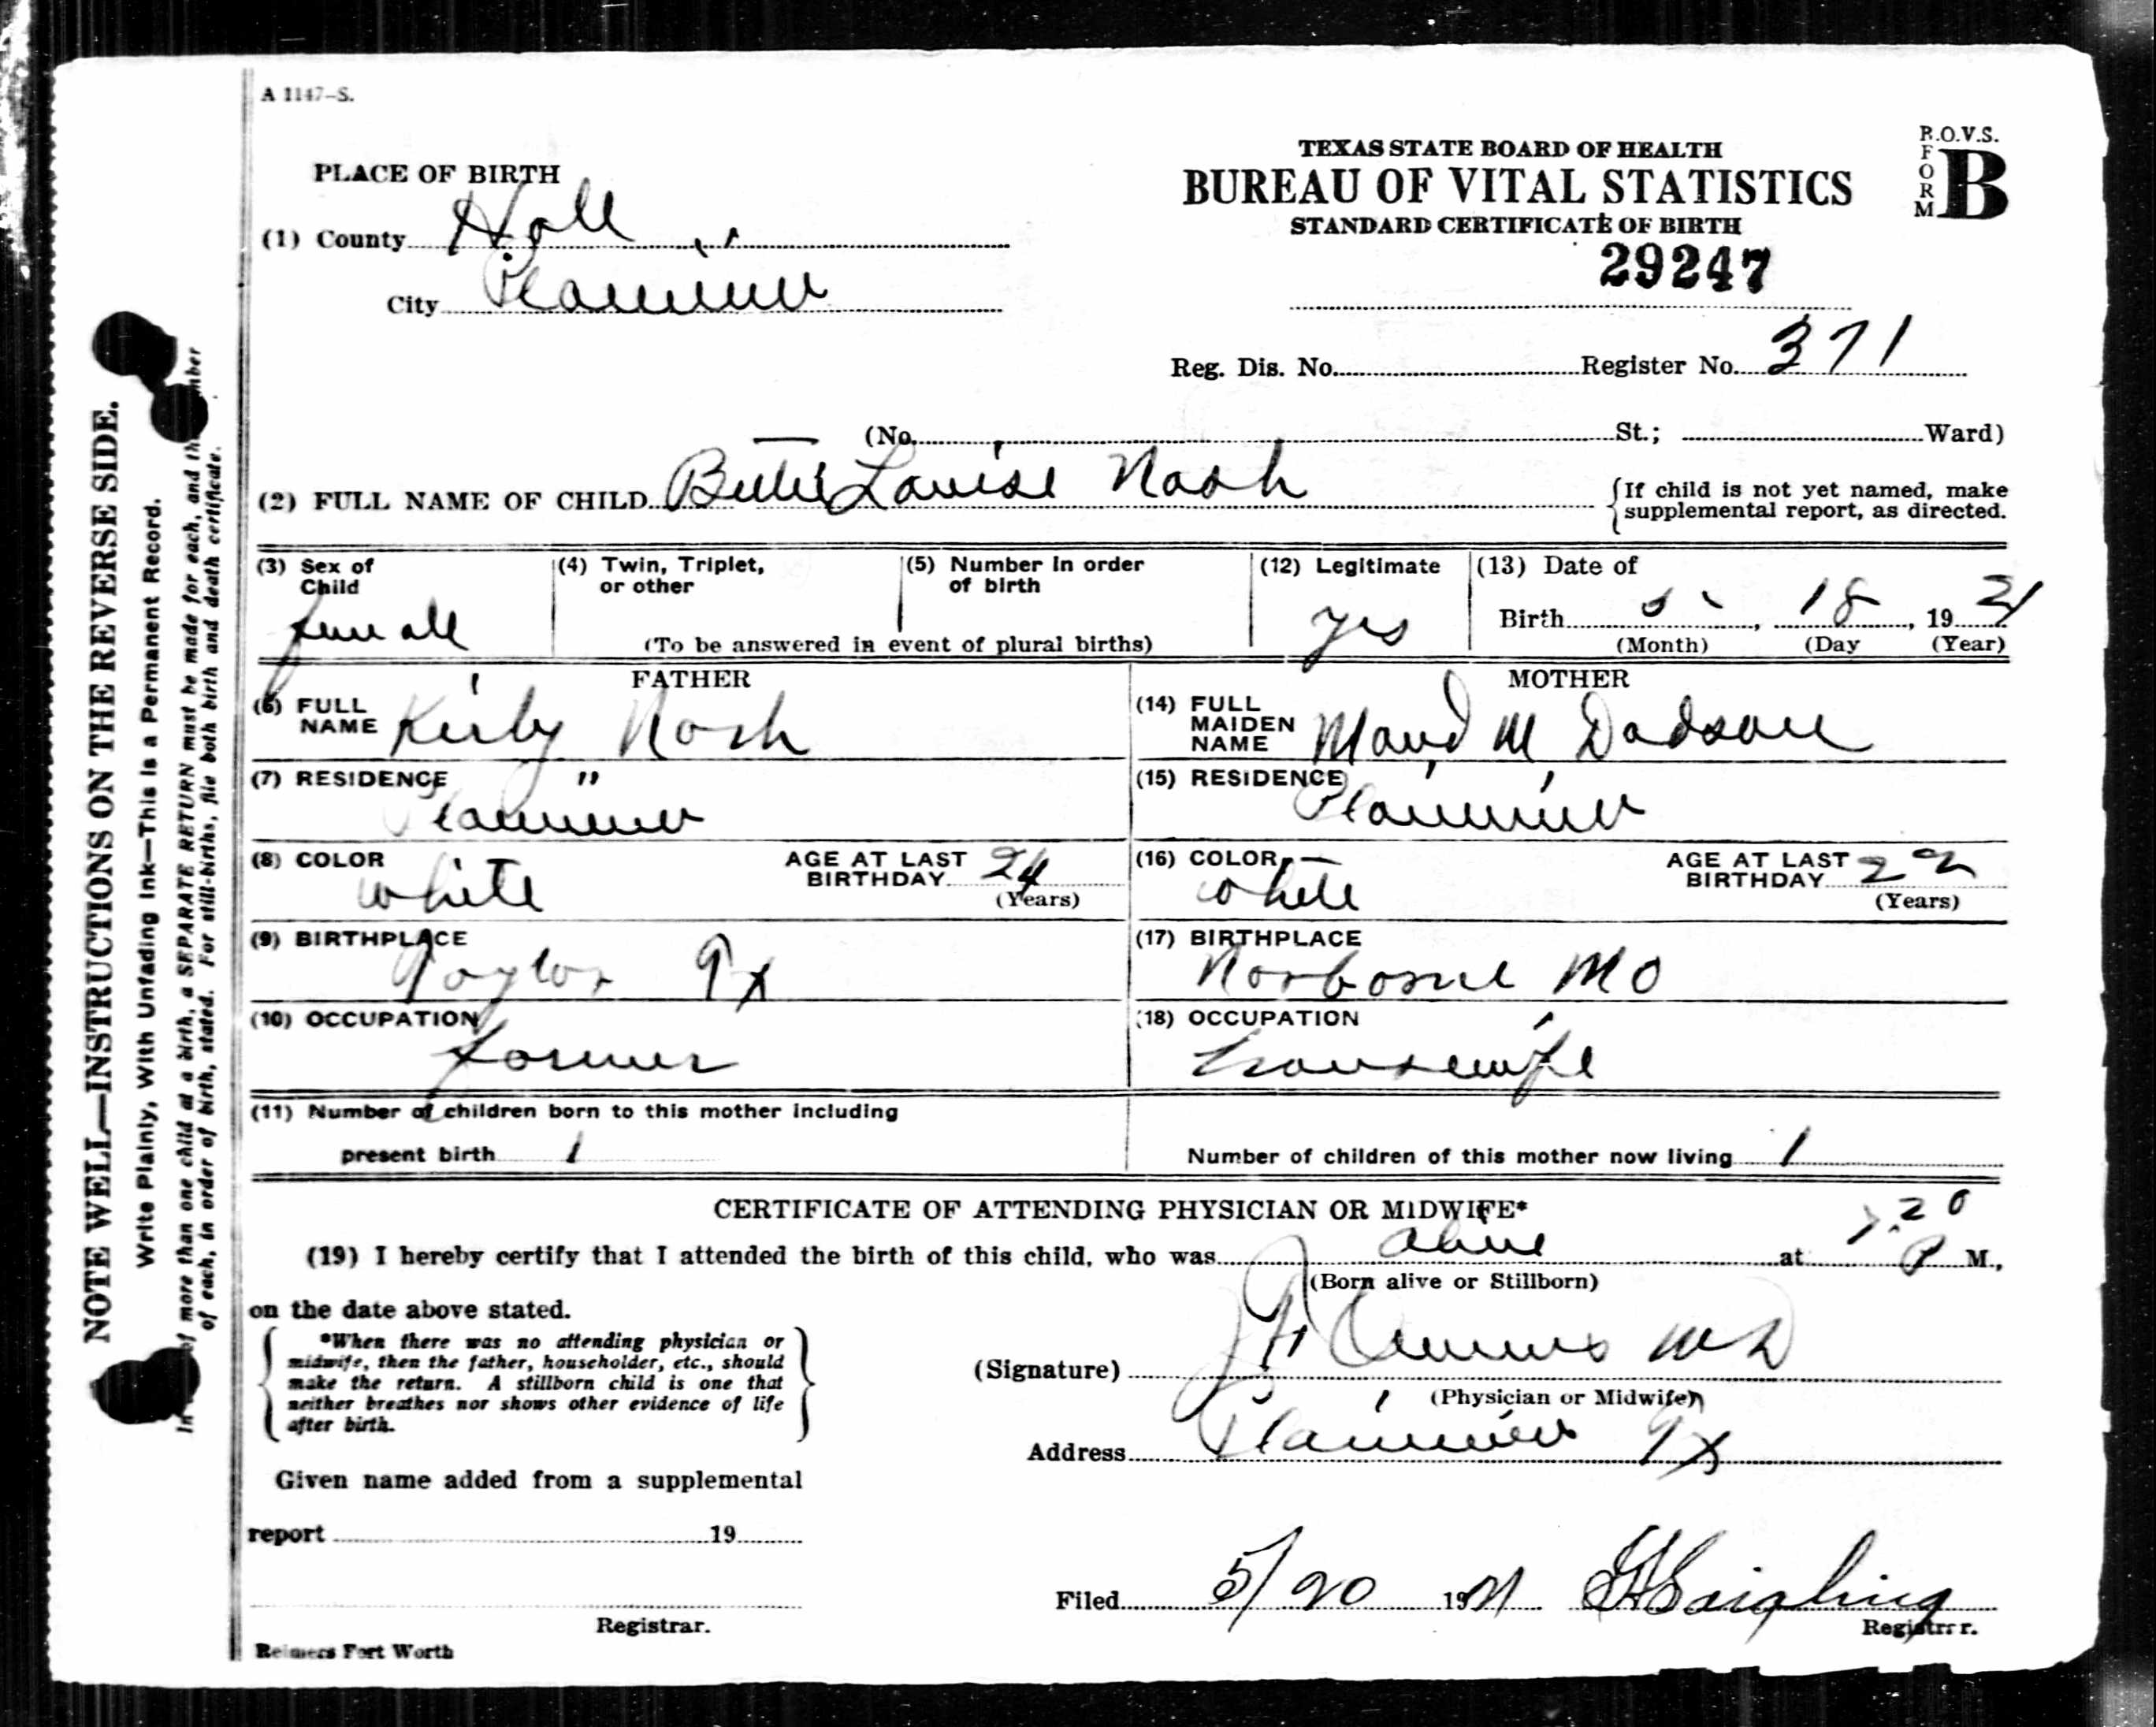 A 1147-S.
R.O.V.S.
FORM B
TEXAS STATE BOARD OF HEALTH
BUREAU OF VITAL STATISTICS
STANDARD CERTIFICATE OF BIRTH
29247
PLACE OF BIRTH
(1) County Hall
City Plainview
Reg. Dis. No. Register No. 371
(No. St.; Ward)
(2) FULL NAME OF CHILD Louise Nash
{If child is not yet named, make
supplemental report, as directed.
(3) Sex of Child female
(4) Twin, Triplet, or other
(5) Number in order of birth
(To be answered in event of plural births)
(12) Legitimate yes
(13) Date of
Birth 5, 18, 19
(Month) (Day (Year)
FATHER
(6) FULL NAME Kirby Nash
(7) RESIDENCE Plainview
(8) COLOR white AGE AT LAST BIRTHDAY 24 (Years)
(9) BIRTHPLACE Taylor Tx
(10) OCCUPATION farmer
MOTHER
(14) FULL MAIDEN NAME Maud M Dodson
(15) RESIDENCE Plainview
(16) COLOR white AGE AT LAST BIRTHDAY 22 (Years)
(17) BIRTHPLACE Norborne MO
(18) OCCUPATION housewife
(11) Number of children born to this mother including
present birth 1 Number of children of this mother now living 1
CERTIFICATE OF ATTENDING PHYSICIAN OR MIDWIFE*
(19) I hereby certify that I attended the birth of this child, who was alive at 20 P M.,
(Born alive or Stillborn)
on the date above stated.
*When there was no attending physician or
midwife, then the father, householder, etc., should
make the return. A stillborn child is one that
neither breathes nor shows other evidence of life
after birth.
(Signature) MD
(Physician or Midwife)
Address Plainview Tx
Given name added from a supplemental
report 19
Filed 5/20 19
Registrar.
Registrar.
Reimers Fort Worth
NOTE WELL—INSTRUCTIONS ON THE REVERSE SIDE.
Write Plainly, With Unfading Ink—This is a Permanent Record.
of more than one child at a birth, a SEPARATE RETURN must be made for each, and the number
of each, in order of birth, stated. For still-births, file both birth and death certificate.